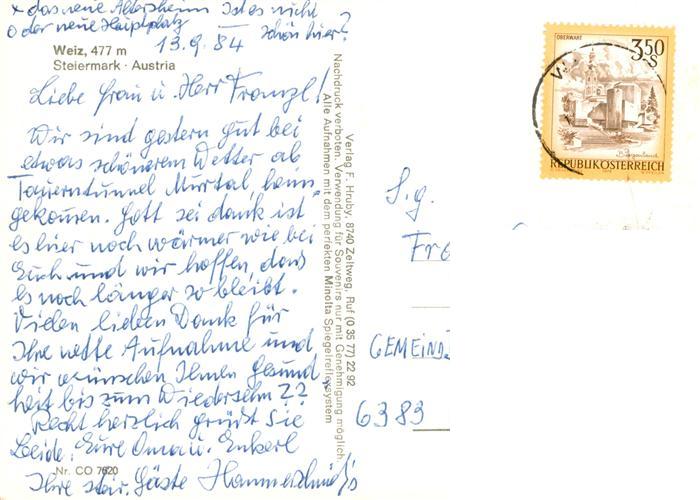 x das neue Altersheim Ist es nicht
o der neue Hauptplatz schön hier?
13.9.84
Weiz, 477 m
Steiermark · Austria
Liebe Frau u. Herr Franzl!
Wir sind gestern gut bei
etwas schönerem Wetter ab
Tauerntunnel Murtal, heim-
gekommen. Gott sei dank ist
es hier noch wärmer wie bei
Euch und wir hoffen, dass
es noch länger so bleibt.
Vielen lieben Dank für
Ihre nette Aufnahme und
wir wünschen Ihnen Gesund
heit bis zum Wiedersehn
Recht herzlich grüßt Sie
Beide, Eure Oma u. Enkerl
Ihre steir. Gäste Hammerschmid's
Nr. CO 7620
Verlag F. Hruby, 8740 Zeltweg, Ruf (0 35 77) 22 92
Nachdruck verboten. Verwendung für Souvenirs nur mit Genehmigung möglich.
Alle Aufnahmen mit dem perfekten Minolta Spiegelreflexsystem
OBERWART
3.50
S
Burgenland
REPUBLIK ÖSTERREICH
S.g.
Fra
GEMEIND
6383